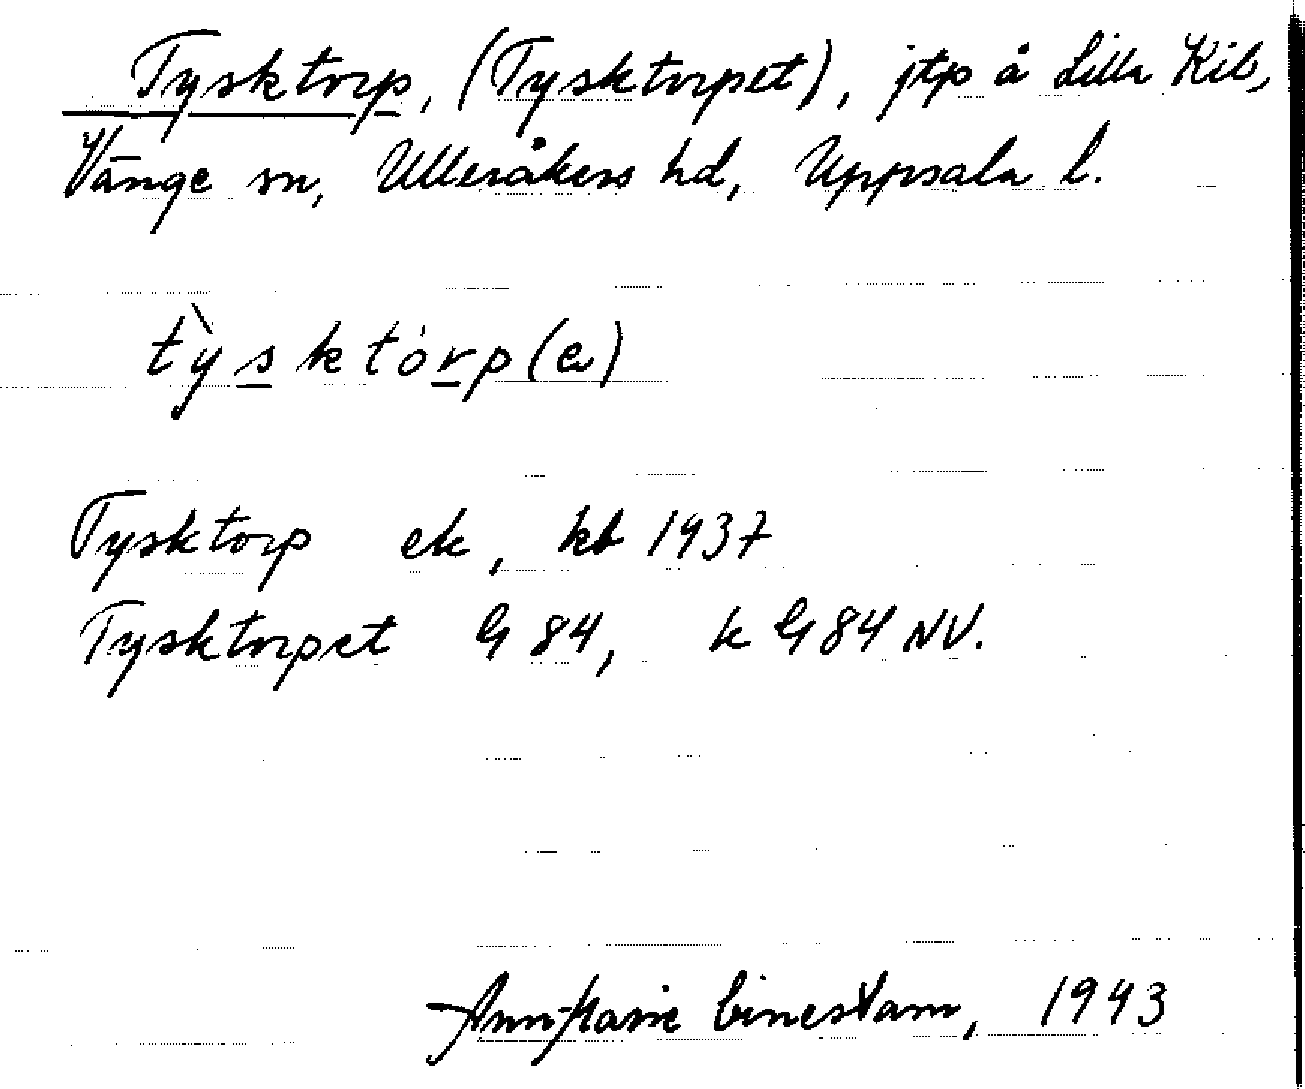 Tysktorp, (Tysktorpet), jtp å Lilla Kil,
Vänge sn, Ulleråkers hd, Uppsala l.
tỳsktórp(e)
Tysktorp ek, kb 1937
Tysktorpet G 84, k G 84 NV.
Ann-Marie 1943